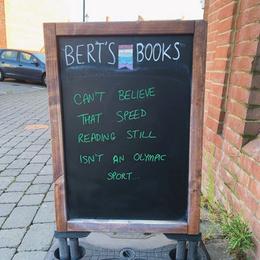 BERT'S BOOKS
CAN'T BELIEVE
THAT SPEED
READING STILL
ISN'T AN OLYMPIC
SPORT...